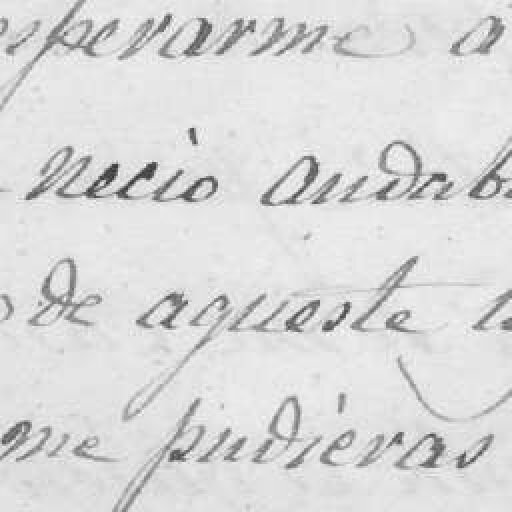 esperarme a
necio andub
de aqueste
me pudieras